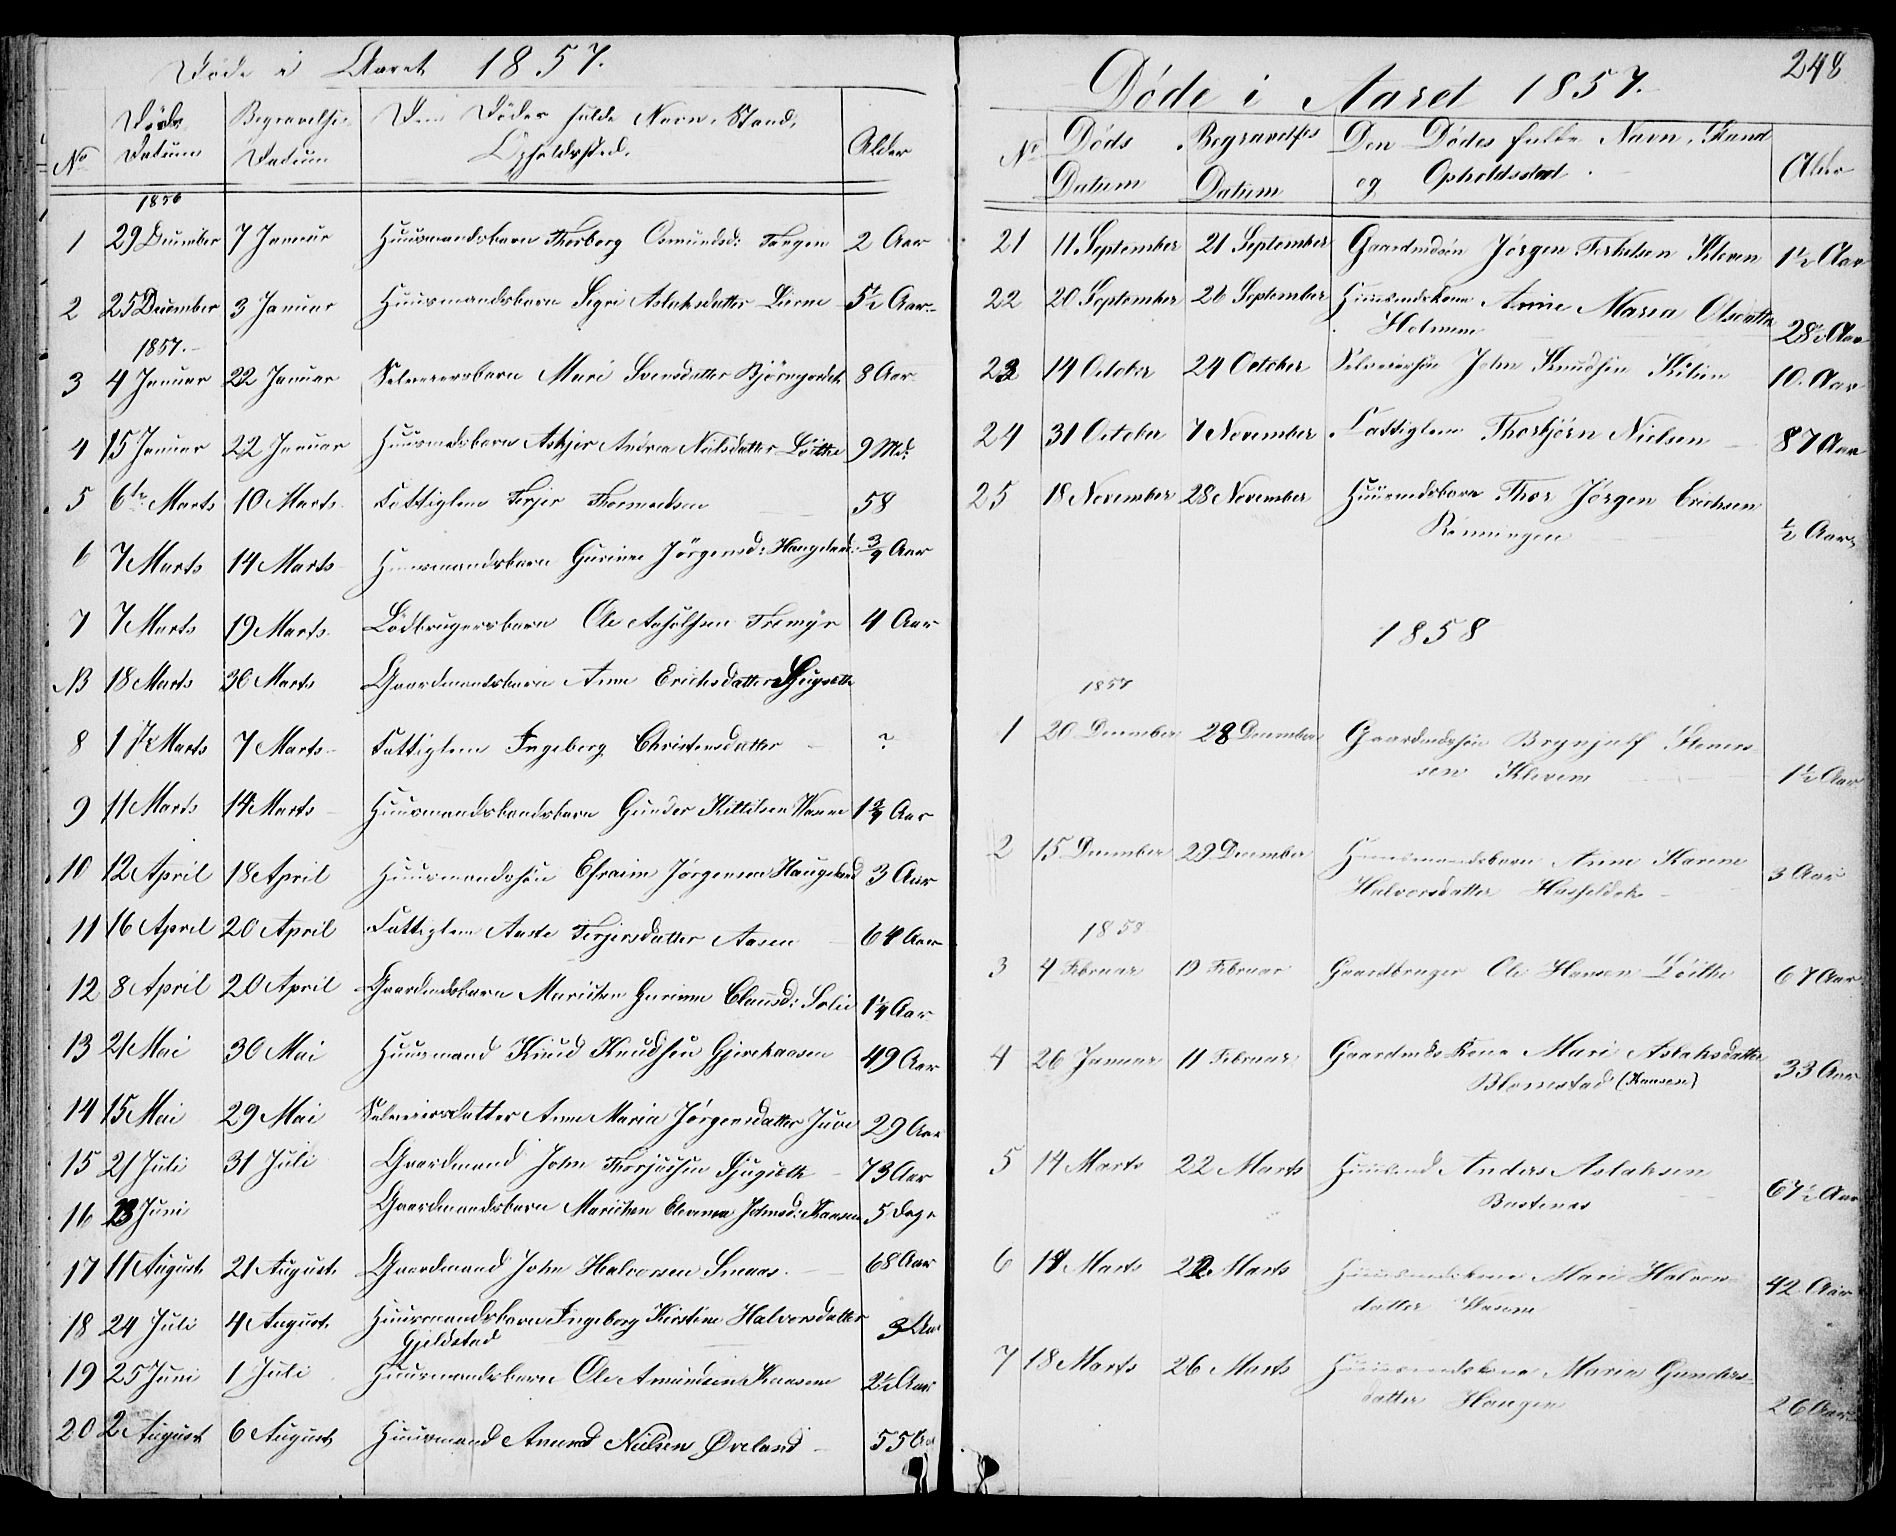 Døde i Aaret 1857.
No Døds Datum Begravelses Datum Den Dødes fulde Navn, Stand, Opholdsted. Alder
1856
1 29 December 7 Januar Huusmandsbarn Thorborg Osmundsd: Tangen 2 Aar
2 25 December 3 Januar Huusmandsbarn Sigri Aslaksdatter Lierne 5½ Aar
1857.
3 4 Januar 22 Januar Selveiersbarn Mari Svensdatter 8 Aar
4 15 Januar 22 Januar Huusmdsbarn Andrea Nielsdatter Løithe 9 Md:
5 6te Marts 10 Marts Fattiglem Terjer 58
6 7 Marts 14 Marts Huusmandsbarn Gurine Jörgensd: Haugeland ¾ Aar
7 7 Marts 19 Marts Lødbrugersbarn Ole 4 Aar
NB 18 Marts 30 Marts Gaardmandsbarn Anne Erichsdatter
8 1 Marts 7 Marts Fattiglem Ingeborg Christensdatter ?
9 11 Marts 14 Marts Huusmandsbarn Gunder Kittilsen 1¾ Aar
10 12 April 18 April Huusmandssøn Efraim Jørgensen Haugeland 3 Aar
11 16 April 20 April Fattiglem Aaste Terjersdatter Aasen 64 Aar
12 8 April 20 April Gaardmdsbarn Marichen Gurine Clausd: Solie 1¼ Aar
13 21 Mai 30 Mai Huusmand Knud Knudsen 49 Aar
14 15 Mai 29 Mai Selveiersdatter Anne Maria Jørgensdatter Juve 29 Aar
15 21 Juli 31 Juli Gaardmand John 73 Aar
16 23 Juni Gaardmandsbarn Marichen Johnsd: Kaasen 5 Dage
17 11 August 21 August Gaardmand John Halvorsen 68 Aar
18 24 Juli 4 August Huusmandsbarn Ingeborg Kirstine Halvorsdatter
Gjeldstad 3 Aar
19 25 Juni 1 Juli Huusmandsbarn Ole Amundsen Kaasene 2½ Aar
20 2 August 6 August Huusmand Amund Nielsen Øveland 55 Aar
248
Døde i Aaret 1857.
No Døds Datum Begravelses Datum Den Dødes fulde Navn, Stand og Opholdssted Alder
21 11 September 21 September Gaardmdsøn Jørgen Terkelsen Kleven 1½ Aar
22 20 September 26 September Huusmdskone Anne Maria Olsdatter
Holmene 28½ Aar
23 14 October 24 October Selveiersøn John Knudsen 10. Aar
24 31 October 7 November Fattiglem Thorbjørn Nielsen 87 Aar
25 18 November 28 November Huusmdsbarn Thor Jørgen Erichsen
Rønningen ½ Aar
1858
1857
1 20 December 28 December Gaardmdssøn Brynjulf Stener
sen Kleven 1½ Aar
2 15 December 29 December Huusmandsbarn Anne Karine
Halvorsdatter Hasseldek 3 Aar
1858
3 4 Februar 19 Februar Gaardbruger Ole Hansen Løithe 67 Aar
4 26 Januar 11 Februar Gaardmds Kone Mari Aslaksdatter
Blomstad (Kaasene) 33 Aar
5 14 Marts 22 Marts Huusmand Anders Aslaksen
Bastenes 67½ Aar
6 14 Marts 22 Marts Huusmdskone Mari Halvors
datter 42 Aar
7 18 Marts 26 Marts Huusmandskone Maria Gunders
datter Haugen 26 Aar